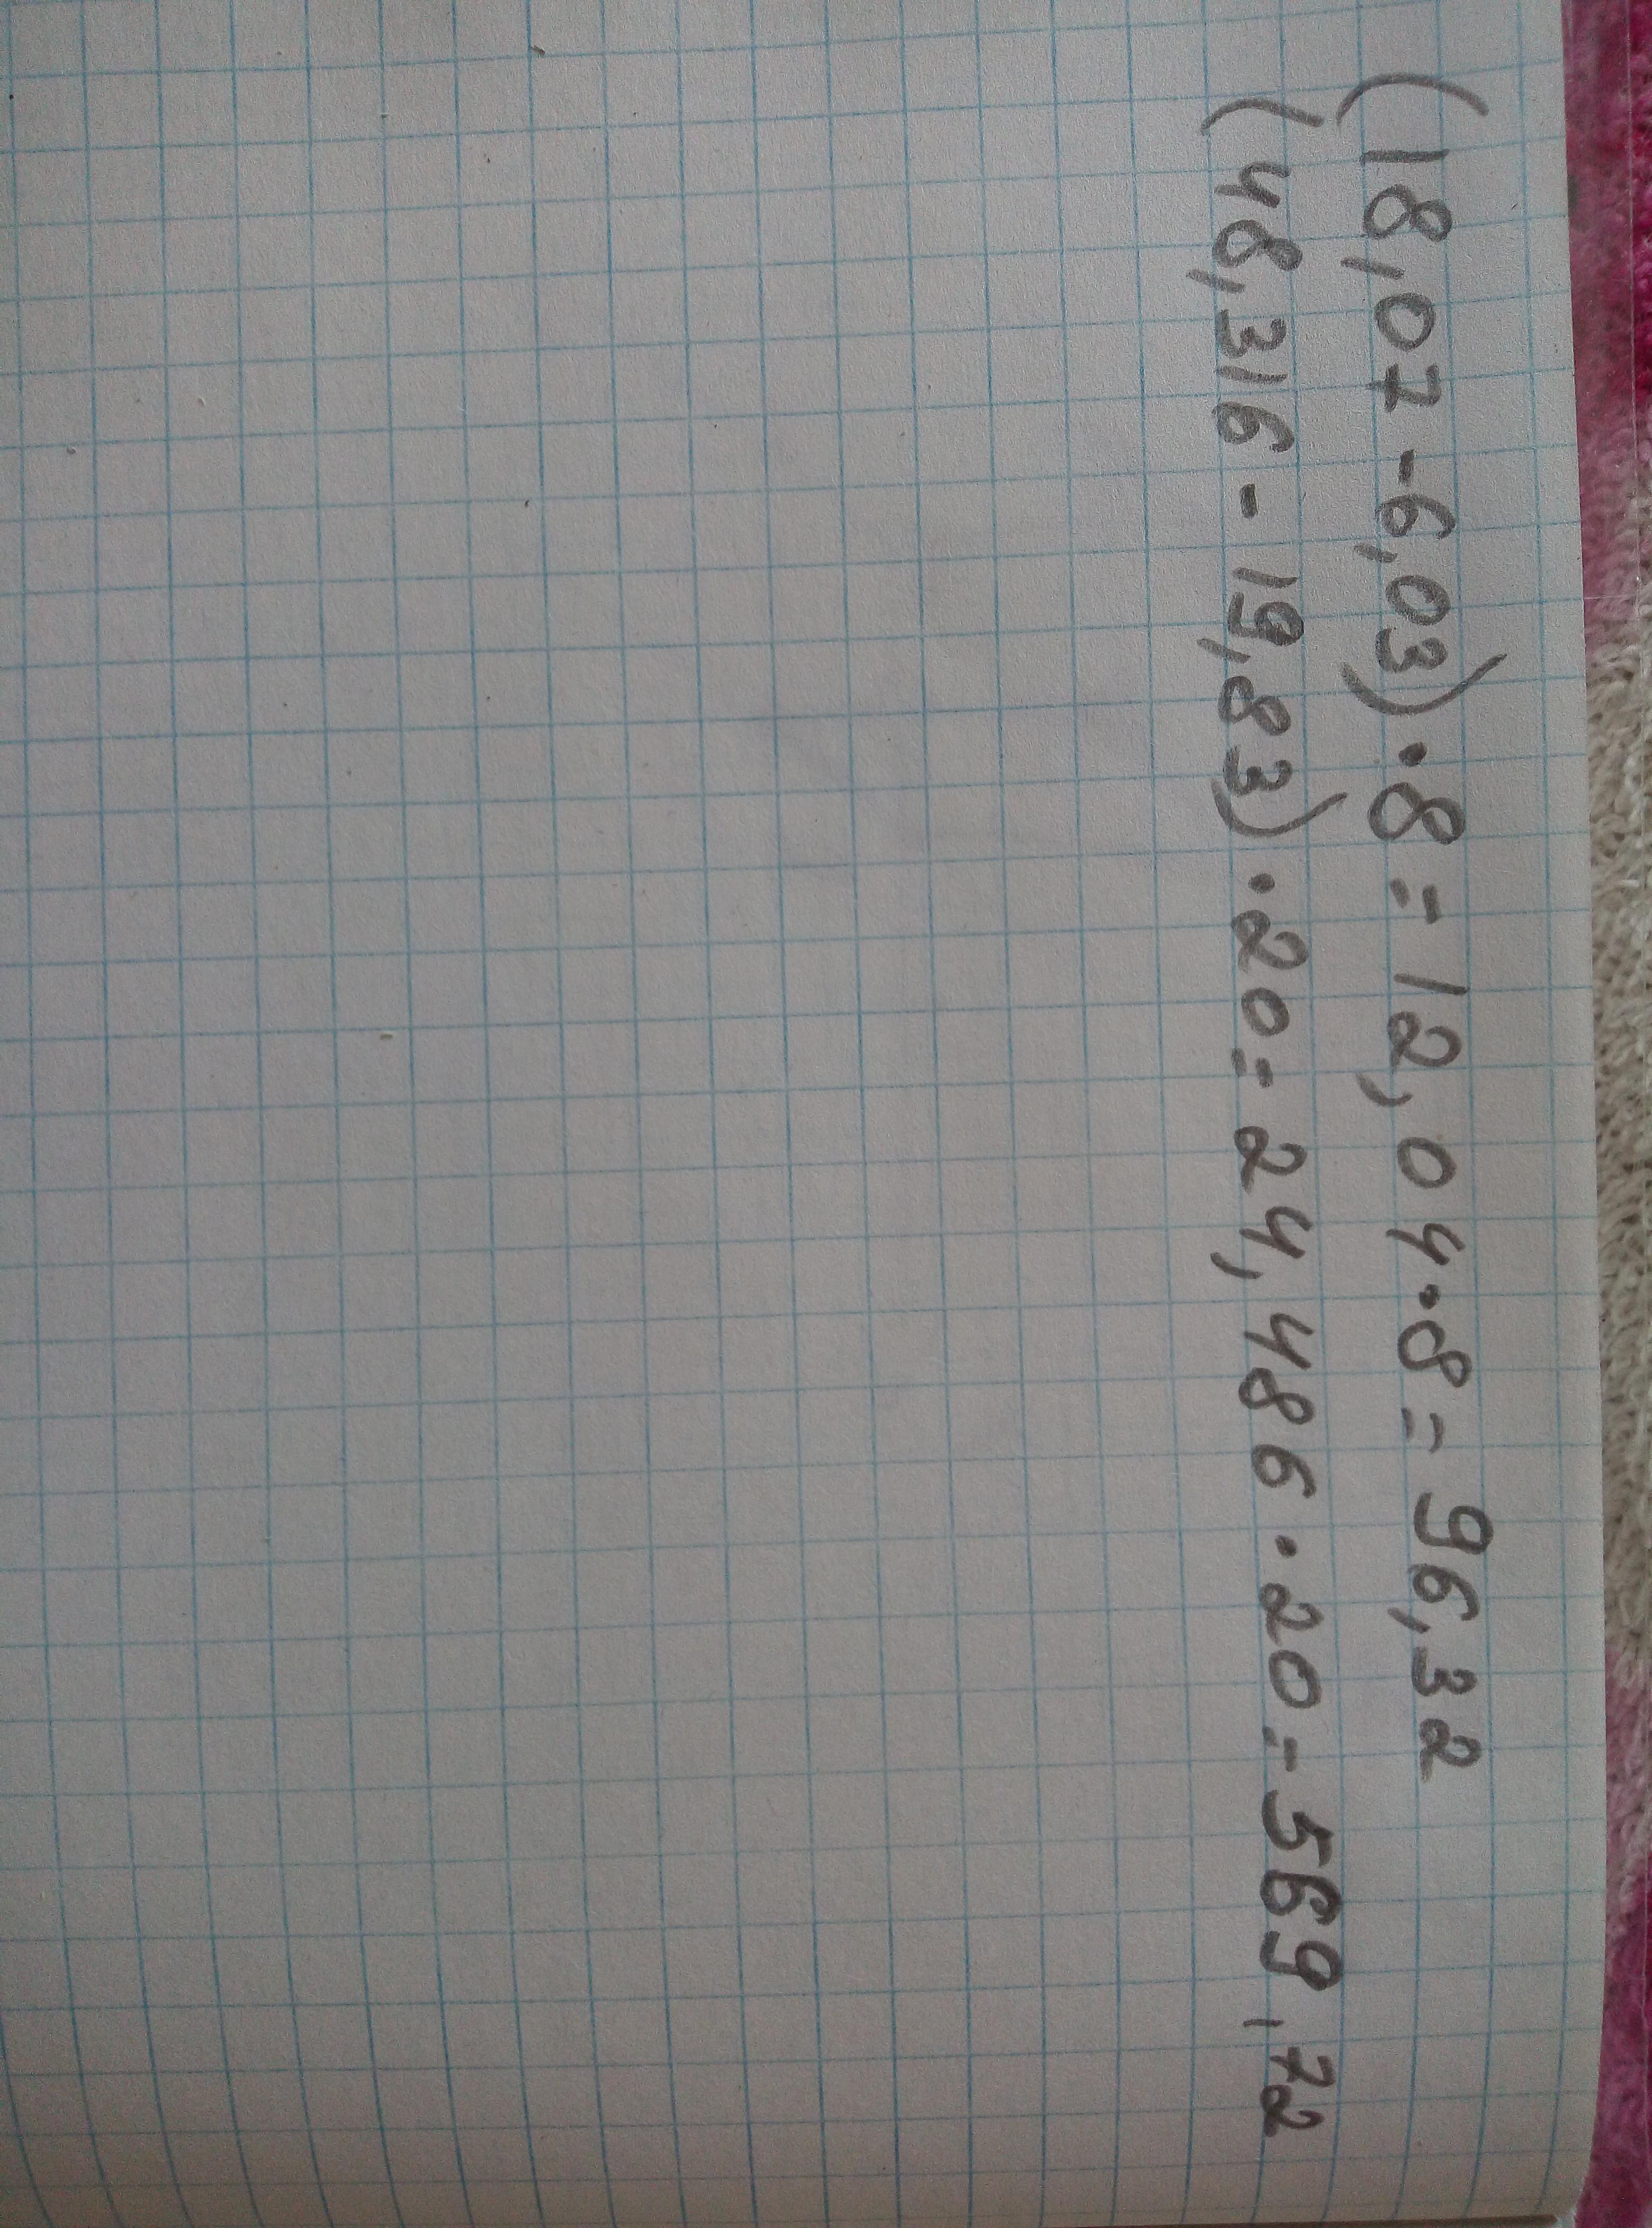 (18,07-6,03)·8=12,04·8=96,32
(48,316-19,83)·20=24,486·20=569,72